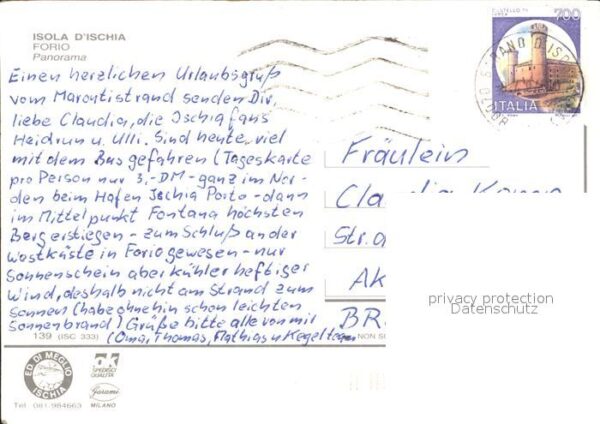 ISOLA D'ISCHIA
FORIO
Panorama
Einen herzlichen Urlaubsgruß
vom Marontistrand senden Dir,
liebe Claudia, die Ischiafans
Heidrun u. Ulli. Sind heute viel
mit dem Bus gefahren (Tageskarte
pro Person nur 3,-DM - ganz im Nor-
den beim Hafen Ischia Porto - dann
im Mittelpunkt Fontana höchsten
Berg erstiegen - zum Schluß an der
Westküste in Forio gewesen - nur
Sonnenschein aber kühler heftiger
Wind, deshalb nicht am Strand zum
Sonnen (habe ohnehin schon leichten
Sonnenbrand) Grüße bitte alle von mir
(Oma, Thomas, Mathias u Kegelteam
139 (ISC 333)
ED. DI MEGLIO
ISCHIA
Tel. 081-984663
OK
Garami
MILANO
NON
700
ITALIA
BARANO D'ISCHIA
80070
Fräulein
Claudia
Str.
Ak
BR
privacy protection
Datenschutz